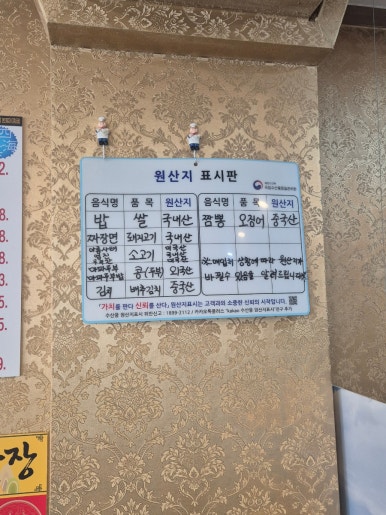 원산지 표시판
음식명 품목 원산지 음식명 품목 원산지
밥 쌀 국내산 짬뽕 오징어 중국산
짜장면 돼지고기 국내산
소고기
※ 매입처 상황에 따라 원산지가
마파두부 콩(두부) 외국산 바뀔수 있음을 알려드립니다
김치 배추김치 중국산
「가치를 판다 신뢰를 산다」 원산지표시는 고객과의 소중한 신뢰의 시작입니다.
수산물 원산지표시 위반신고 : 1899-2112 / 카카오톡플러스 'kakao 수산물 원산지표시' 친구 추가
2.
8.
8.
8.
5.
9.
짜장